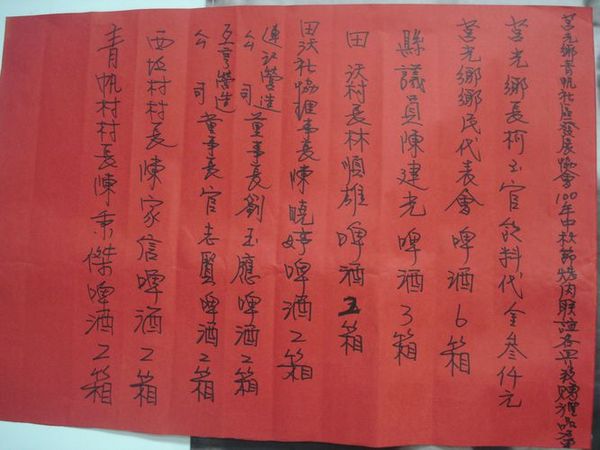 莒光鄉青帆社區發展協會100年中秋節烤肉聯誼各界致贈禮品單
莒光鄉長柯玉官飲料代金叁仟元
莒光鄉鄉民代表會啤酒6箱
縣議員陳建光啤酒3箱
田沃村長林順雄啤酒五箱
田沃社協理事長陳曉婷啤酒2箱
連江營造公司董事長劉玉應啤酒2箱
互亨營造公司董事長官志賢啤酒2箱
西坵村村長陳家信啤酒2箱
青帆村村長陳秉傑啤酒2箱